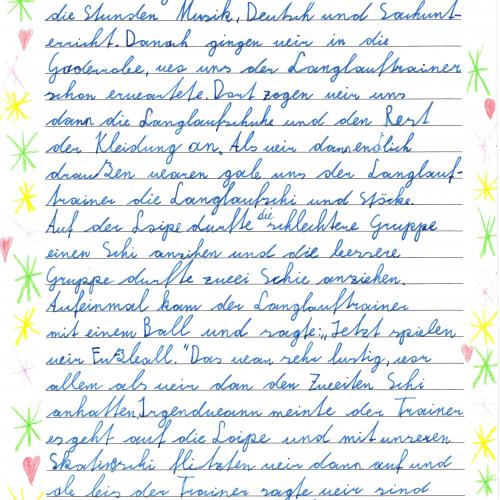 die Stunden Musik, Deutsch und Sachunt-
erricht. Danach gingen wir in die
Gaderrobe, wo uns der Langlauftrainer
schon erwartete. Dort zogen wir uns
dann die Langlaufschuhe und den Rest
der Kleidung an. Als wir dann endlich
draußen waren gab uns der Langlauf-
trainer die Langlaufschi und Stöcke.
Auf der Loipe durfte die schlechtere Gruppe
einen Schi anziehen und die bessere
Gruppe durfte zwei Schie anziehen.
Aufeinmal kam der Langlauftrainer
mit einem Ball und sagte: „Jetzt spielen
wir Fußball." Das war sehr lustig, vor
allem als wir dan den Zweiten Schi
anhatten. Irgendwann meinte der Trainer
es geht auf die Loipe und mit unseren
Skatingschi flitzten wir dann auf und
ab bis der Trainer sagte wir sind